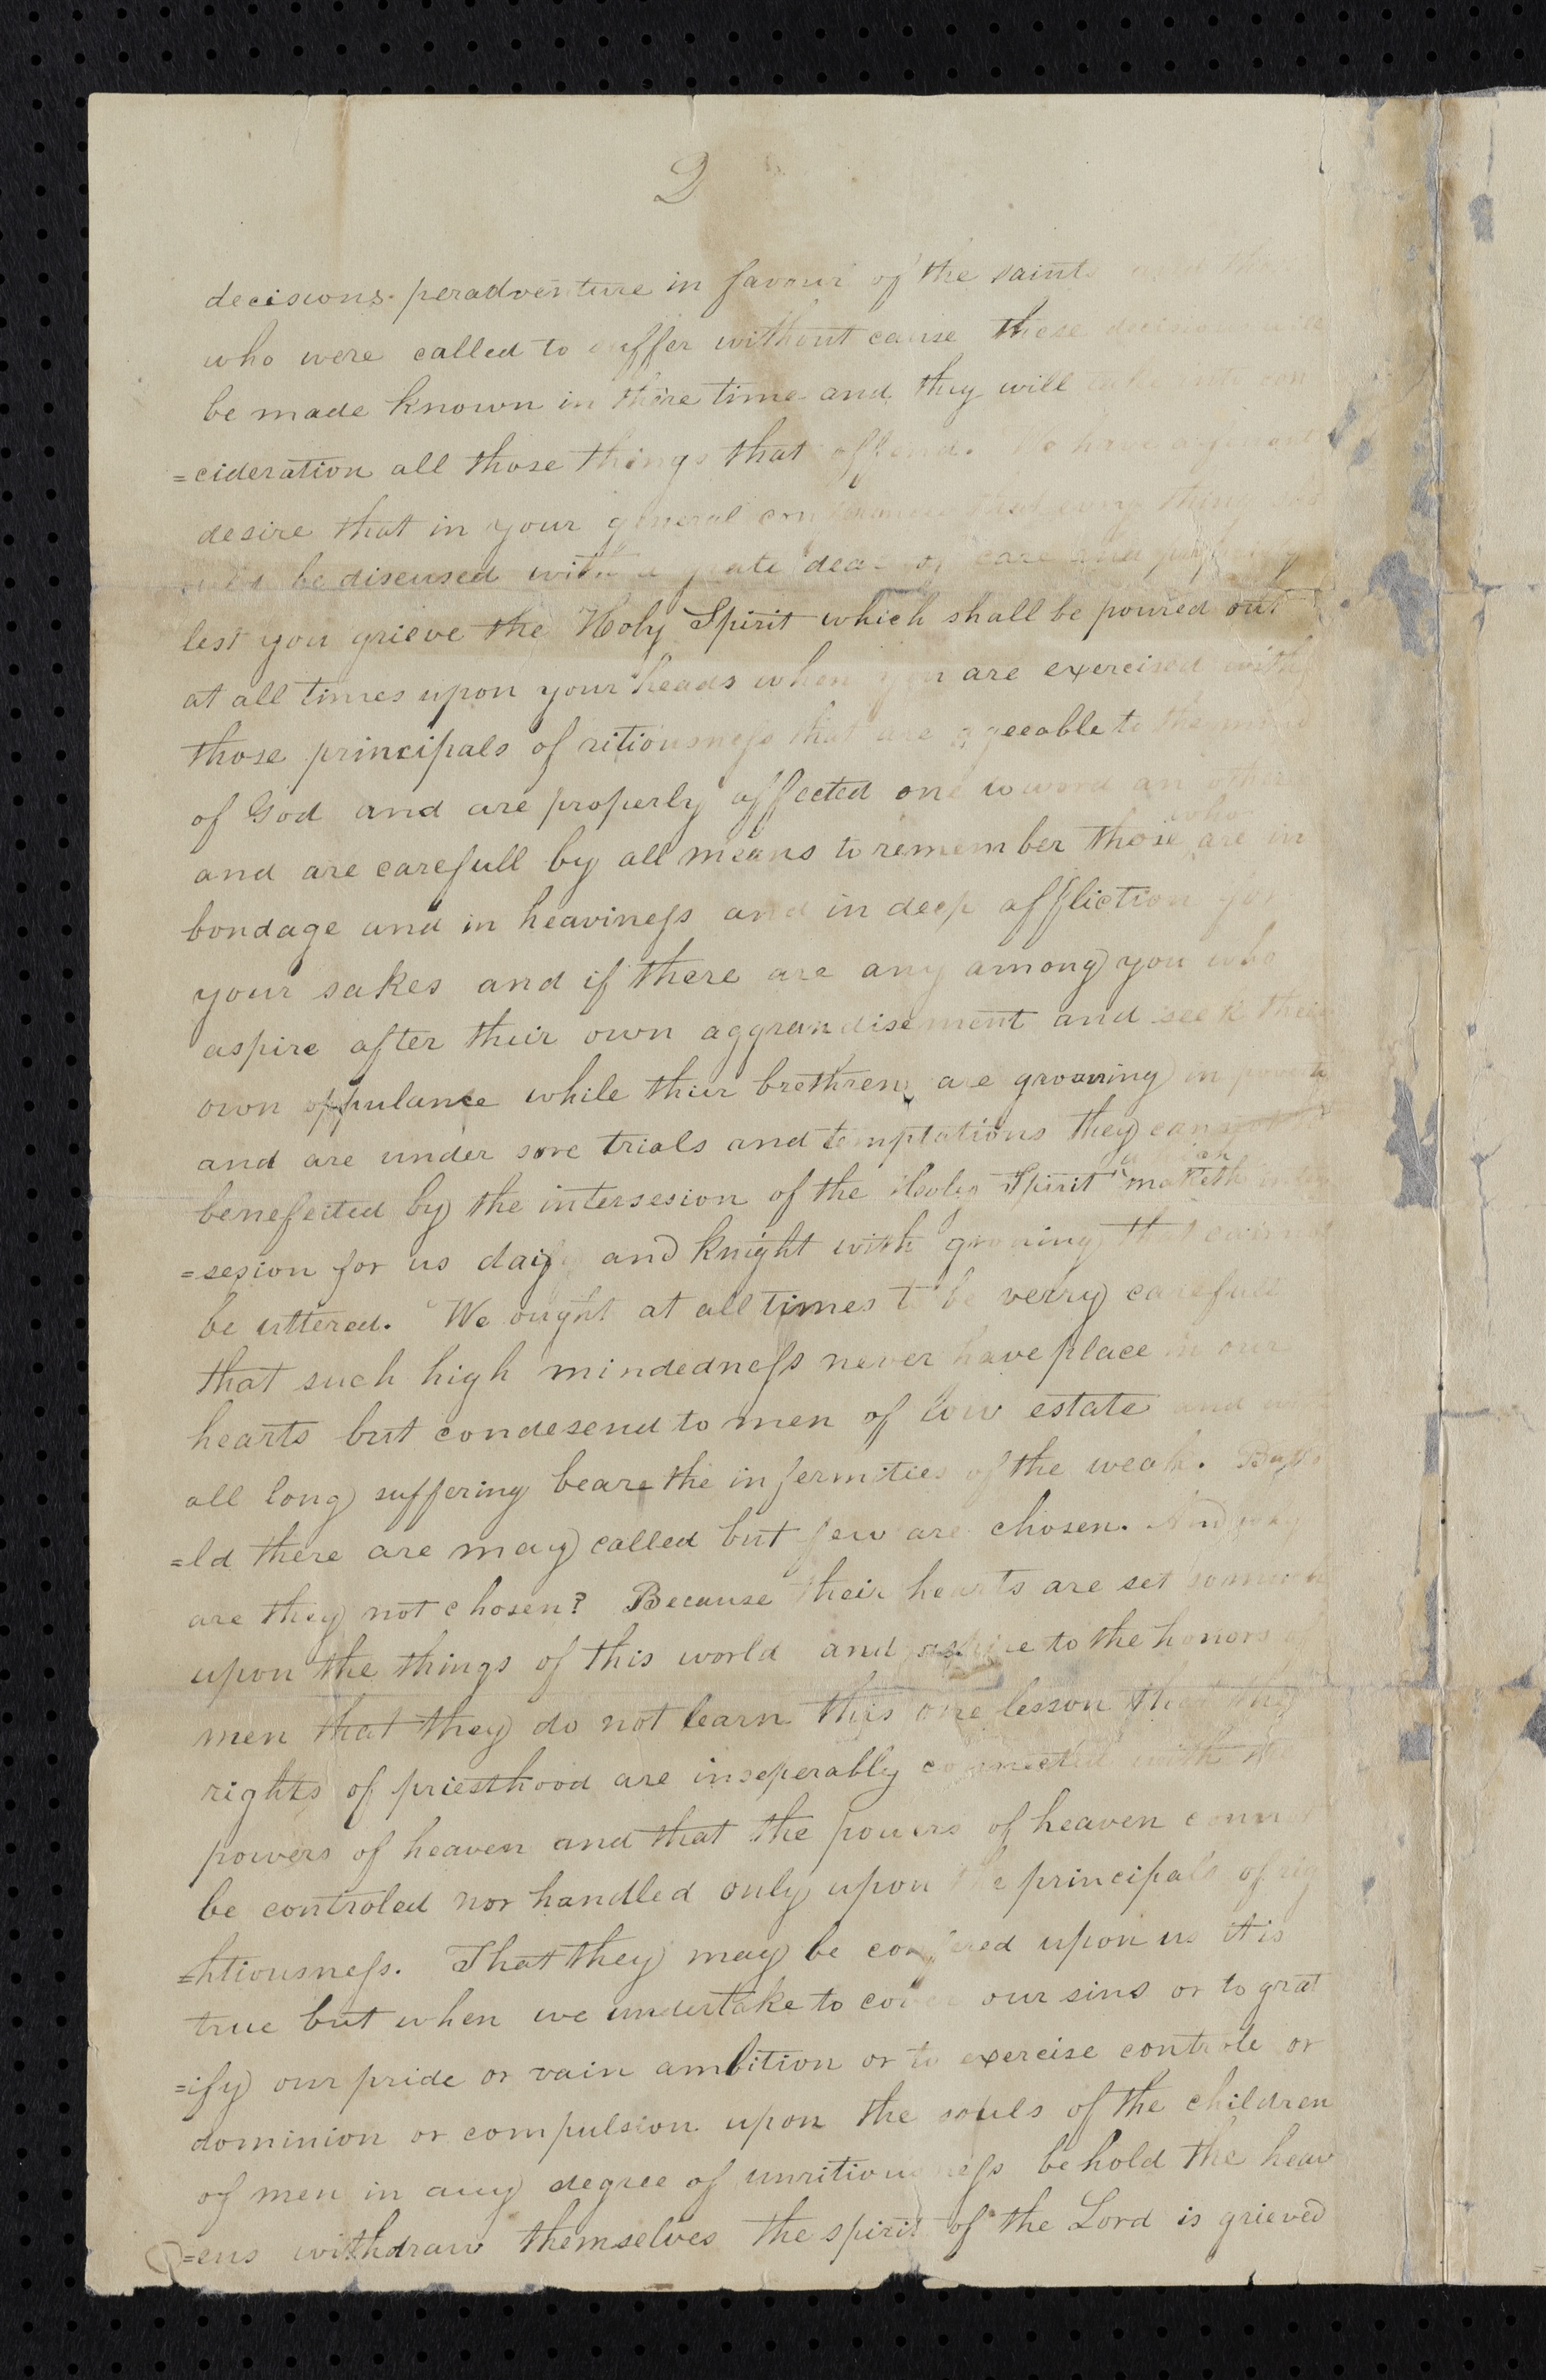 2
decisions peradventure in favour of the saints
who were called to suffer without cause these decisions will
be made known in there time and they will take into con
=cideration all those things that offend. We have a fervant
desire that in your general conferences that evry thing sho
be discused with a grate deal of care and propriety
lest you grieve the Holy Spirit which shall be poured out
at all times upon your heads when you are exercised with
those principals of ritiousness that are ageeable to the mind
of God and are properly affected one toword an other
and are carefull by all means to remember those who are in
bondage and in heaviness and in deep affliction for
your sakes and if there are any among you who
aspire after their own aggrandisement and seek their
own oppulance while thier brethren are groaning in poverty
and are under sore trials and temptations they can not be
benefeited by the intersesion of the Holy Spirit which maketh inter
=sesion for us daily and knight with groning that cannot
be uttered. We ought at all times to be verry carefull
that such high mindedness never have place in our
hearts but condesend to men of low estate and with
all long suffering beare the infermities of the weak. Beho
=ld there are may called but few are chosen. And why
are they not chosen? Because their hearts are set so much
upon the things of this world and aspire to the honors of
men that they do not learn this one lesson that the
rights of priesthood are inseperably connected with the
powers of heaven and that the powers of heaven connot
be controled nor handled only upon the principals of rig
=htiousness. That they may be confered upon us it is
true but when we undertake to cover our sins or to grat
=ify our pride or vain ambition or to exercise controle or
dominion or compulsion upon the souls of the children
of men in any degree of unritiousness behold the heav
=ens withdraw themselves the spirit of the Lord is grieved